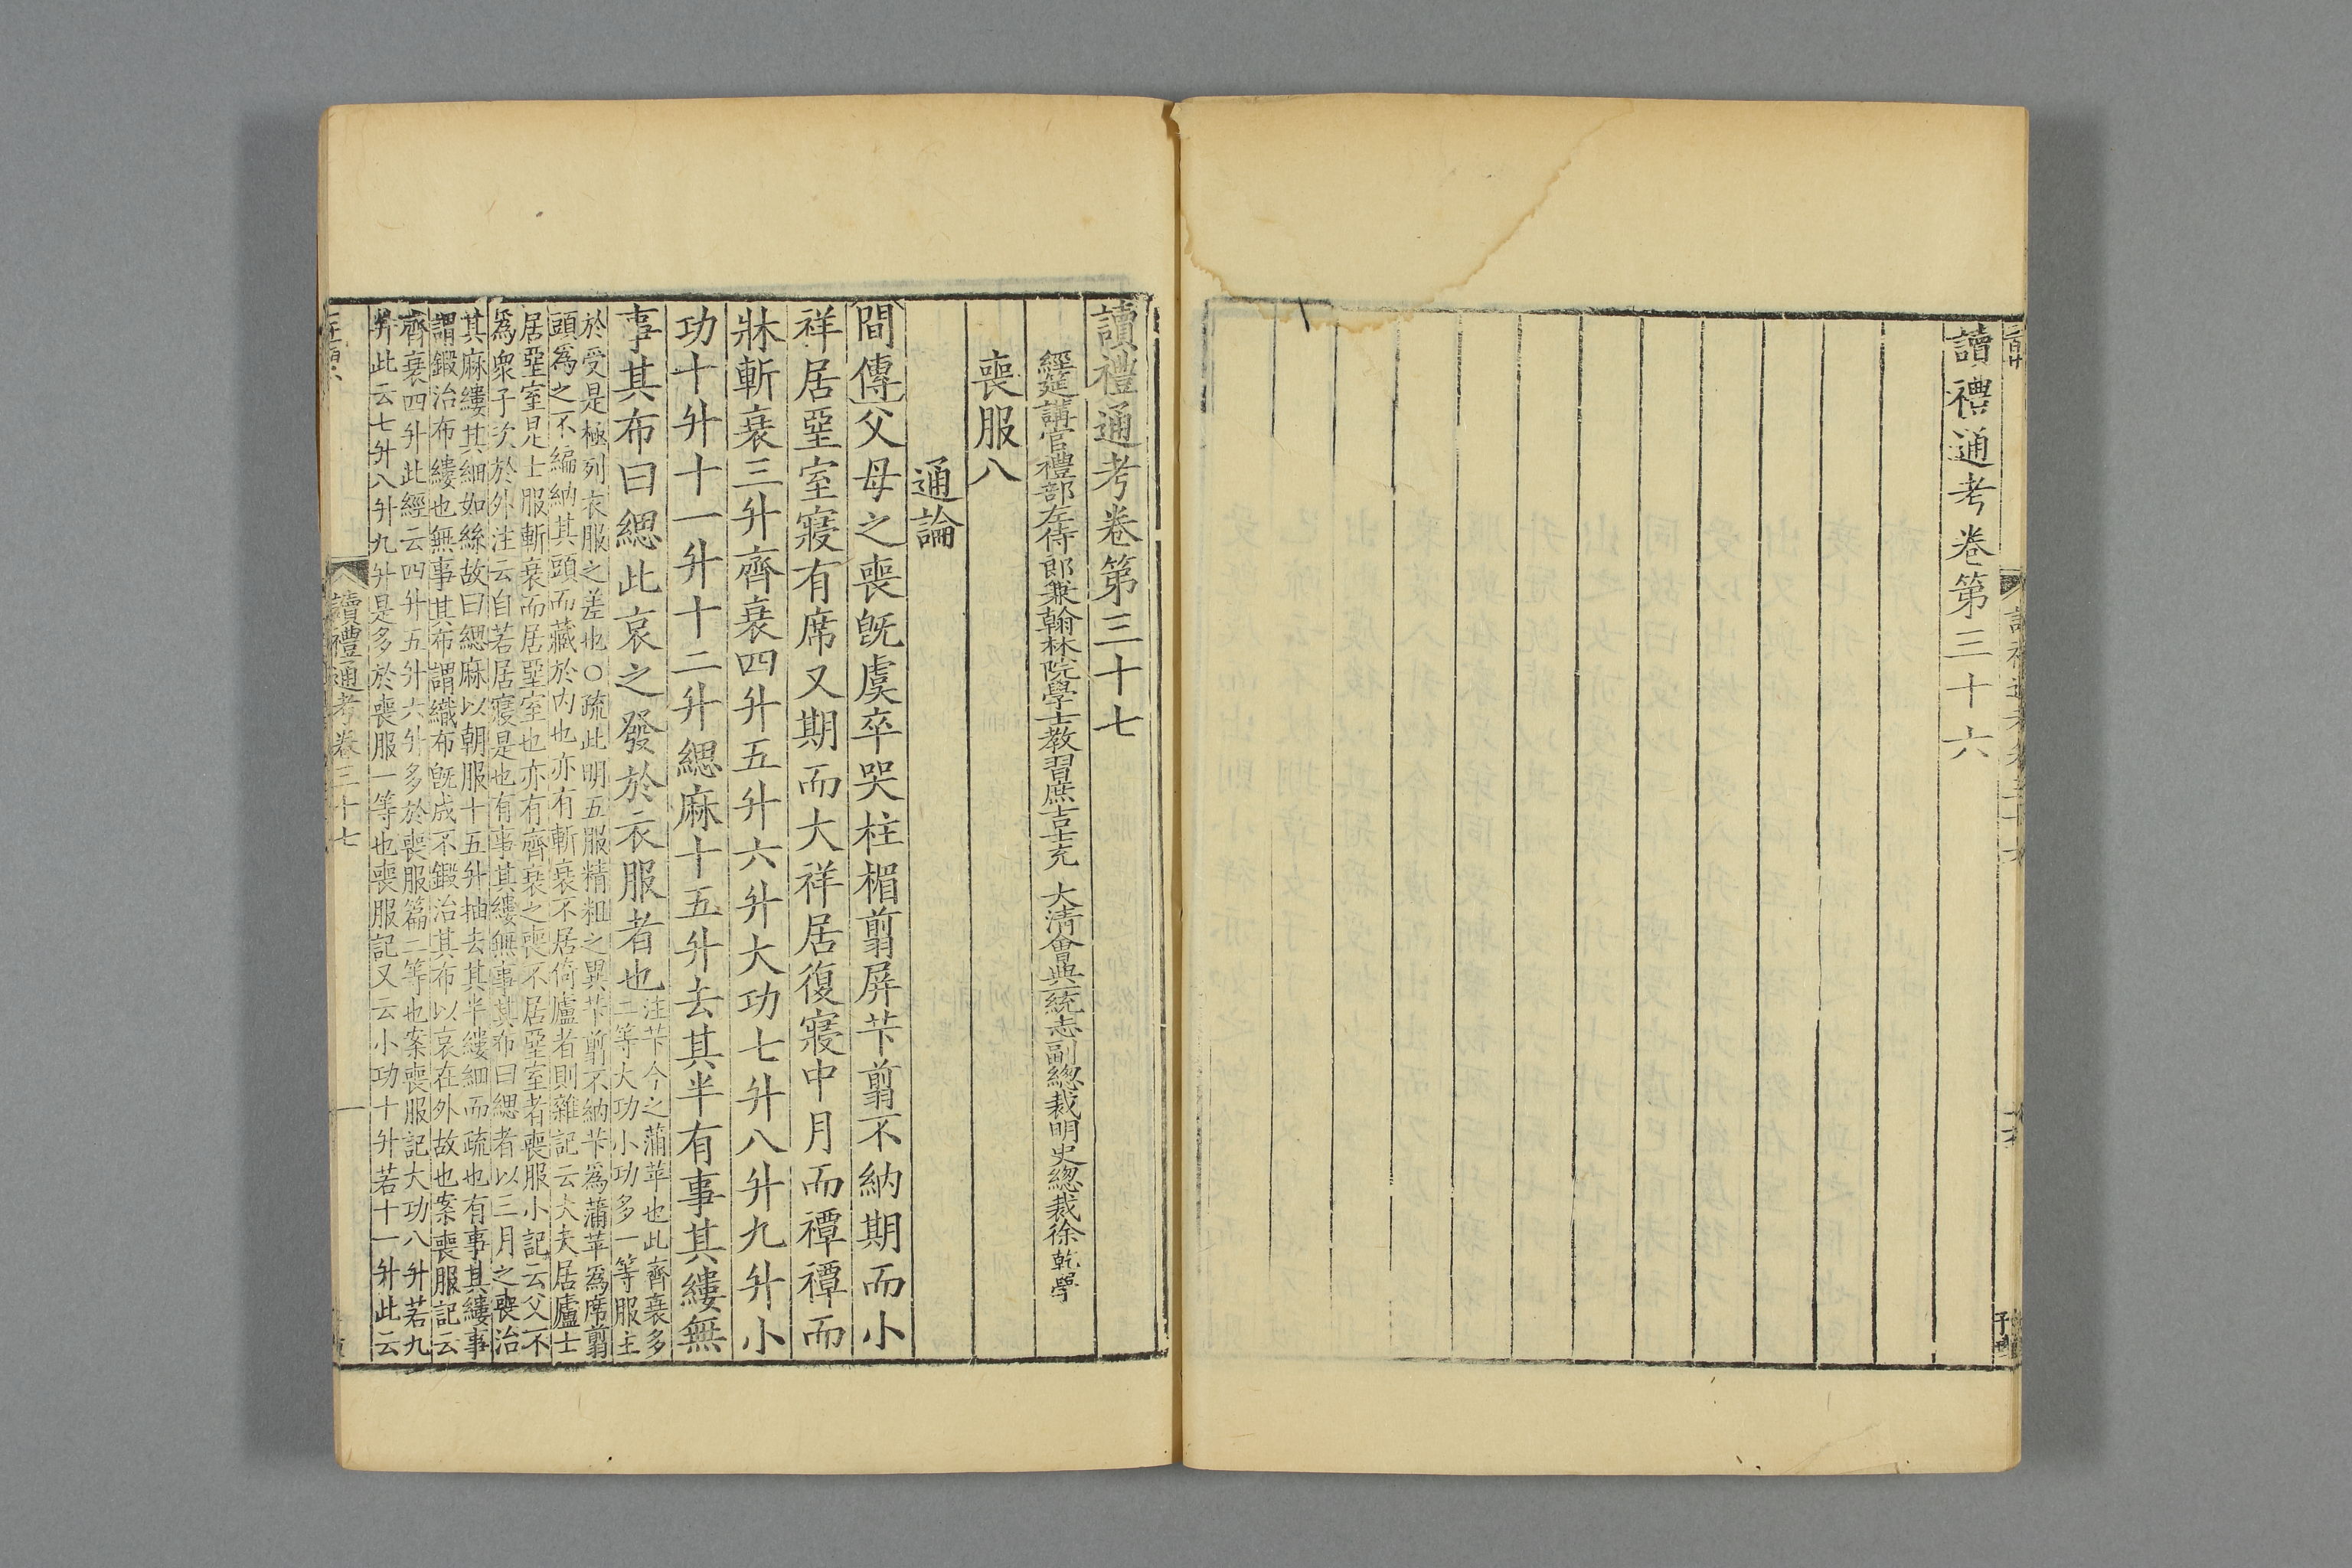 讀禮通考卷第三十六
讀禮通考卷第三十七
經筵講官禮部左侍郎兼翰林院學士教習庶吉士充　大清會典一統志副總裁明史總裁徐乾學
喪服八
通論
間傳父母之喪旣虞卒哭柱楣翦屏苄翦不納期而小
祥居堊室寢有席又期而大祥居復寢中月而禫禫而
牀斬衰三升齊衰四升五升六升大功七升八升九升小
功十升十一升十二升緦麻十五升去其半有事其縷無
事其布曰緦此哀之發於衣服者也
注苄今之蒲苹也此齊衰多
二等大功小功多一等服主
於受是極列衣服之差也○疏此明五服精粗之異苄翦不納苄爲蒲苹爲席翦
頭爲之不編納其頭而藏於內也亦有斬衰不居倚廬者則雜記云大夫居廬士
居堊室是士服斬衰而居堊室也亦有齊衰之喪不居堊室者喪服小記云父不
爲衆子次於外注云自若居寢是也有事其縷無事其布曰緦者以三月之喪治
其麻縷其細如絲故曰緦麻以朝服十五升抽去其半縷細而疏也有事其縷事
謂鍛治布縷也無事其布謂織布旣成不鍛治其布以哀在外故也案喪服記云
齊衰四升此經云四升五升六升多於喪服篇二等也案喪服記大功八升若九
升此云七升八升九升是多於喪服一等也喪服記又云小功十升若十一升此云
讀禮通考卷三十七
一